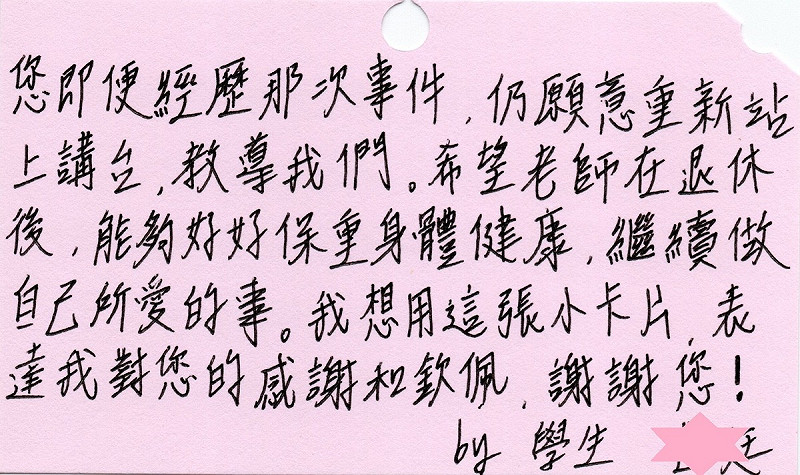 您即便經歷那次事件,仍願意重新站
上講台,教導我們。希望老師在退休
後,能夠好好保重身體健康,繼續做
自己所愛的事。我想用這張小卡片,表
達我對您的感謝和欽佩,謝謝您!
by 學生